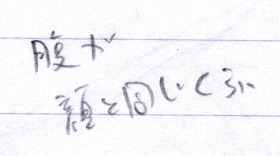 腹が
顔と同じくらい